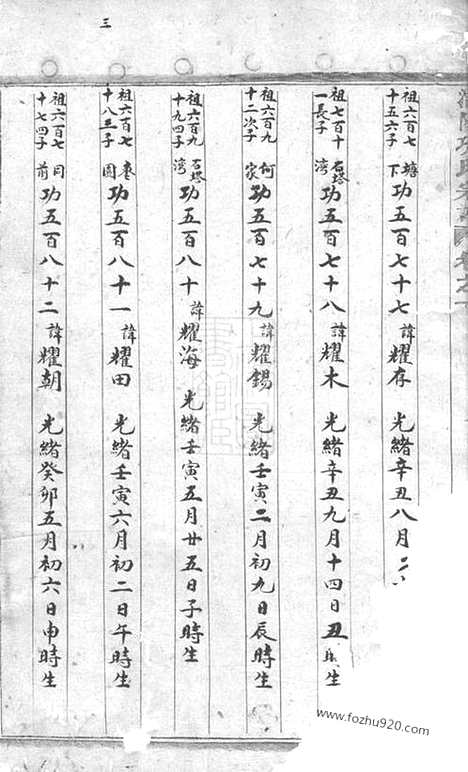 祖六百七十五六子 塘下 功五百七十七 諱耀存 光緒辛丑八月二
祖七百十一長子 石塔灣 功五百七十八 諱耀木 光緒辛丑九月十四日丑時生
祖六百九十二次子 何家 功五百七十九 諱耀錫 光緒壬寅二月初九日辰時生
祖六百九十九四子 石塔灣 功五百八十 諱耀海 光緒壬寅五月廿五日子時生
祖六百七十八三子 園 功五百八十一 諱耀田 光緒壬寅六月初二日午時生
祖六百七十七四子 前 功五百八十二 諱耀朝 光緒癸卯五月初六日申時生
三
www.fozhu920.com